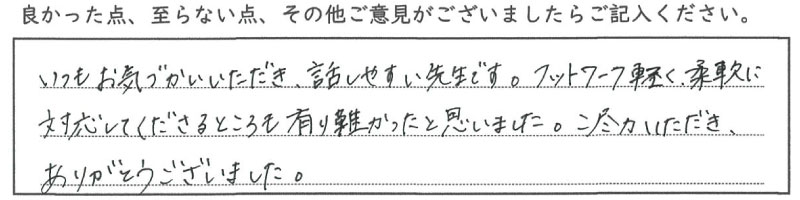 良かった点、至らない点、その他ご意見がございましたらご記入ください。
いつもお気づかいいただき、話しやすい先生です。フットワーク軽く、柔軟に
対応してくださるところも有り難かったと思いました。ご尽力いただき、
ありがとうございました。